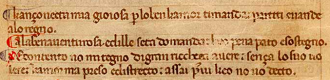 Chançonecta mia gioiosa p lolen hamor timanda. partiti enande
alo regno.
Ala benauentu rosa edille seto domanda. hor pena pato eso stegno.
Contento no mi tegno di gran richeza auere. senza lo suo uo
lere eamor mia preso edistrecto. assai piu lice no no decto